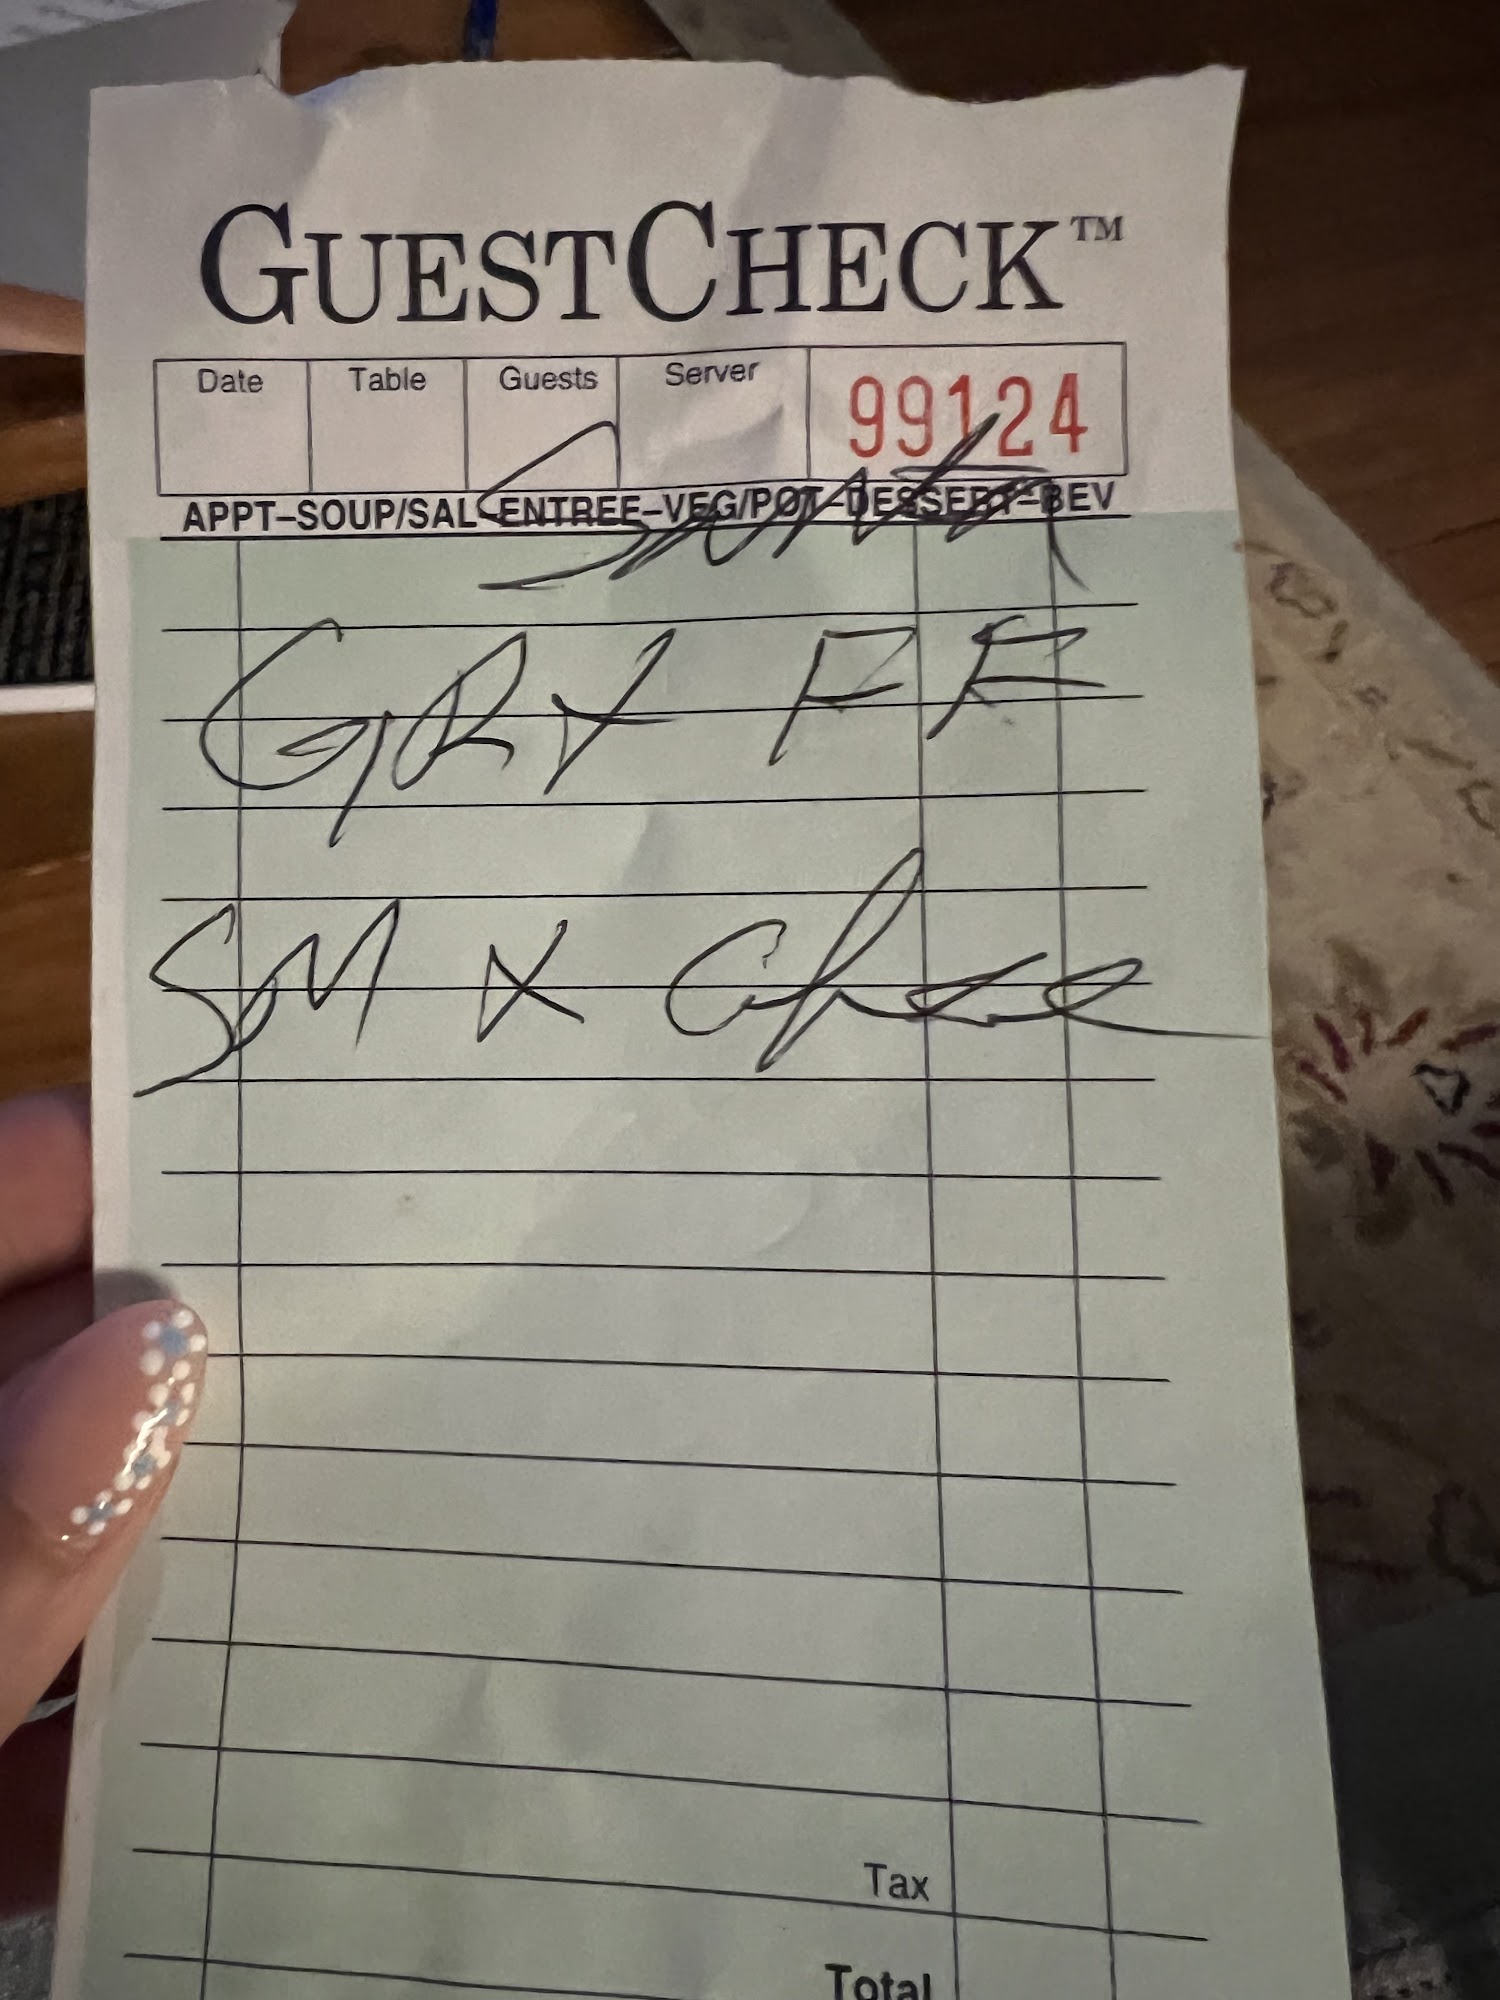 GUESTCHECK™
Date Table Guests Server 99124
APPT–SOUP/SAL–ENTREE–VEG/POT–DESSERT–BEV
GRY FF
SM X Cheese
Tax
Total